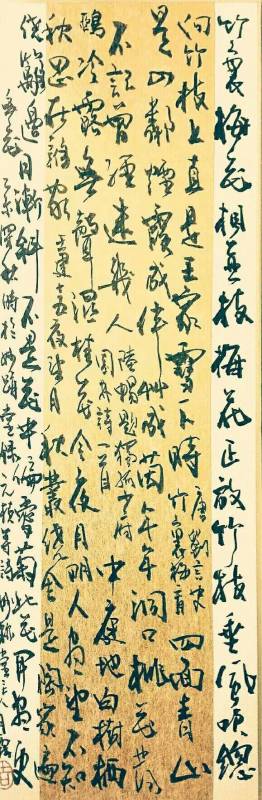 竹裏梅花相並枝梅花正放竹枝垂風吹總
向竹枝上直是王家雪下時 唐劉言史竹裏梅 四面青山
是四鄰煙霞成伴草成茵年年洞口桃花發
不記曾經迷幾人 陸暢題獨孤少府園林詩一首 中庭地白樹棲
鴉冷露無聲濕桂花今夜月明人盡望不知
秋思在誰家 王建十五夜望月 秋叢繞舍是陶家遍
繞籬邊日漸斜不是花中偏愛菊此花開盡更
無花 深秋 錄元稹等詩 堂主人